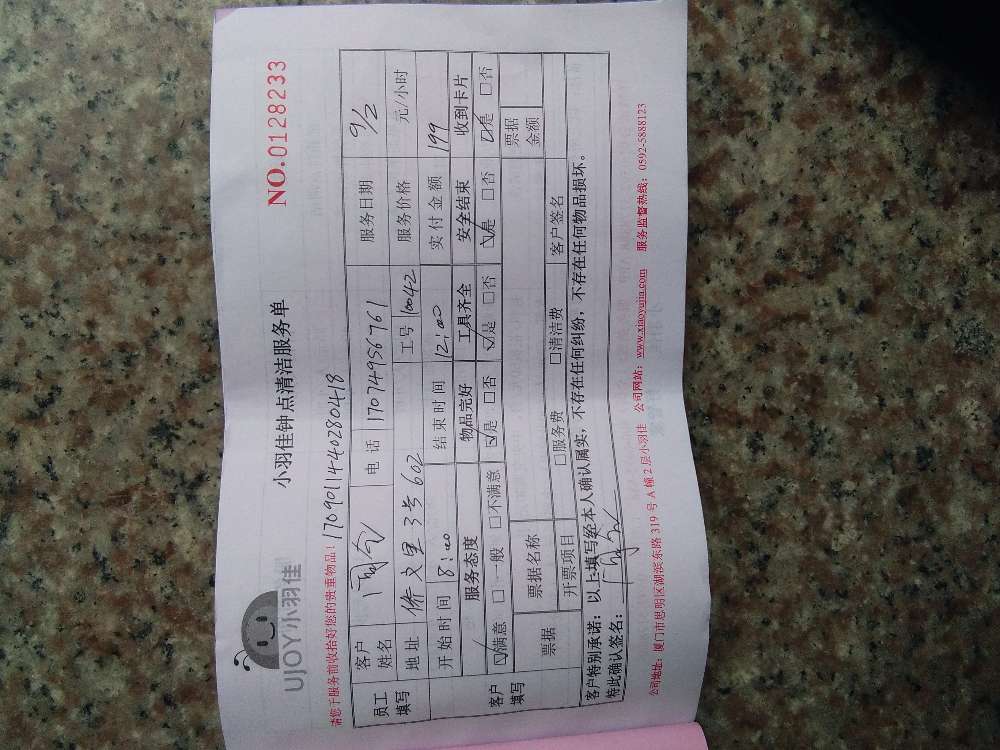 UJOY小羽佳
小羽佳钟点清洁服务单
NO.0128233
请您于服务前收拾好您的贵重物品! 170901144028 0418
员工填写 客户姓名 电话 17074956761 服务日期 9/2
地址 侨文里3号602 工号 10042 服务价格 元/小时
开始时间 8:00 结束时间 12:00 实付金额 199
客户填写 服务态度 物品完好 工具齐全 安全结束 收到卡片
☑满意 □一般 □不满意 ☑是 □否 ☑是 □否 ☑是 □否 ☑是 □否
票据 票据名称 票据金额
开票项目 □服务费 □清洁费 客户签名
客户特别承诺:以上填写经本人确认属实,不存在任何纠纷,不存在任何物品损坏。
特此确认签名:
公司地址:厦门市思明区湖滨东路319号A幢2层小羽佳 公司网站:www.xiaoyujia.com 服务监督热线:0592-5888123